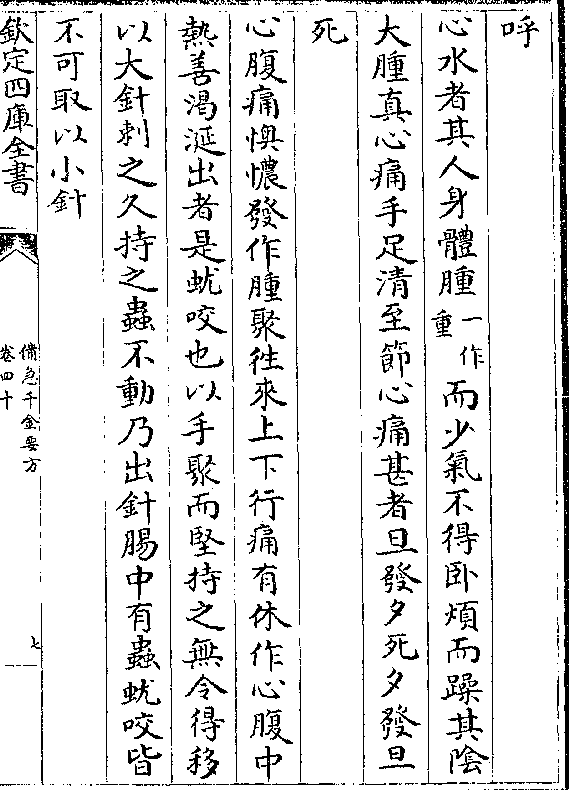 呼
心水者其人身體腫一作重而少氣不得卧煩而躁其陰
大腫真心痛手足清至節心痛甚者旦發夕死夕發旦
死
心腹痛懊憹發作腫聚徃來上下行痛有休作心腹中
熱善渴涎出者是蚘咬也以手聚而堅持之無令得移
以大針刺之久持之蟲不動乃出針腸中有蟲蚘咬皆
不可取以小針
欽定四庫全書
備急千金要方
卷四十
七